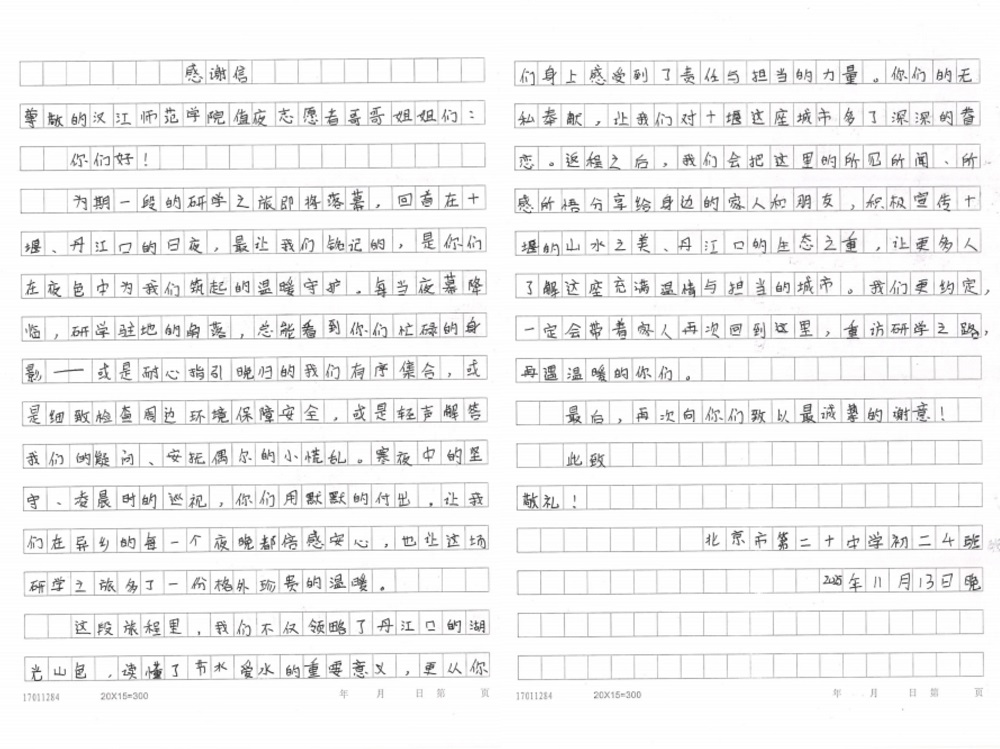 感谢信
尊敬的汉江师范学院值夜志愿者哥哥姐姐们：
你们好！
为期一段的研学之旅即将落幕，回首在十
堰、丹江口的日夜，最让我们铭记的，是你们
在夜色中为我们筑起的温暖守护。每当夜幕降
临，研学驻地的角落，总能看到你们忙碌的身
影——或是耐心指引晚归的我们有序集合，或
是细致检查周边环境保障安全，或是轻声解答
我们的疑问、安抚偶尔的小慌乱。寒夜中的坚
守、凌晨时的巡视，你们用默默的付出，让我
们在异乡的每一个夜晚都倍感安心，也让这场
研学之旅多了一份格外珍贵的温暖。
这段旅程里，我们不仅领略了丹江口的湖
光山色，读懂了节水爱水的重要意义，更从你
17011284 20X15=300 年 月 日 第 页
们身上感受到了责任与担当的力量。你们的无
私奉献，让我们对十堰这座城市多了深深的眷
恋。返程之后，我们会把这里的所见所闻、所
感所悟分享给身边的家人和朋友，积极宣传十
堰的山水之美、丹江口的生态之重，让更多人
了解这座充满温情与担当的城市。我们更约定，
一定会带着家人再次回到这里，重访研学之路，
再遇温暖的你们。
最后，再次向你们致以最诚挚的谢意！
此致
敬礼！
北京市第二十中学初二4班
2025年11月13日晚
17011284 20X15=300 年 月 日 第 页